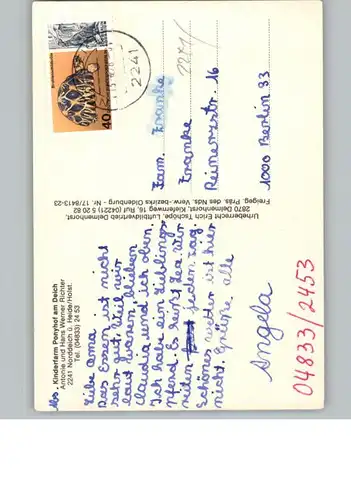 Abs. Kinderfarm Ponyhof am Deich
Antonie und Hans Werner Richter
2241 Norddeich ü. Heide/Holst.
Tel. (04833) 24 53
Liebe Oma
Das Essen ist nicht
sehr gut. Weil wir
laut waren blieben
Claudia und ich oben.
Ich habe ein Lieblings
pferd. Es heißt Lea. Wir
reiten jeden Tag.
Schönes wieder ist hier
nicht. Grüße alle
Angela
04833/2453
Urheberrecht Erich Tschöpe, Luftbildvertrieb Delmenhorst,
2870 Delmenhorst, Kiefernweg 16, Ruf (04221) 5 20 83
Freigeg. Präs. des Nds. Verw.-bezirks Oldenburg - Nr. 17/8413-23
40
2241
Fam. Franke
Franke
Reinerzstr. 16
1000 Berlin 33